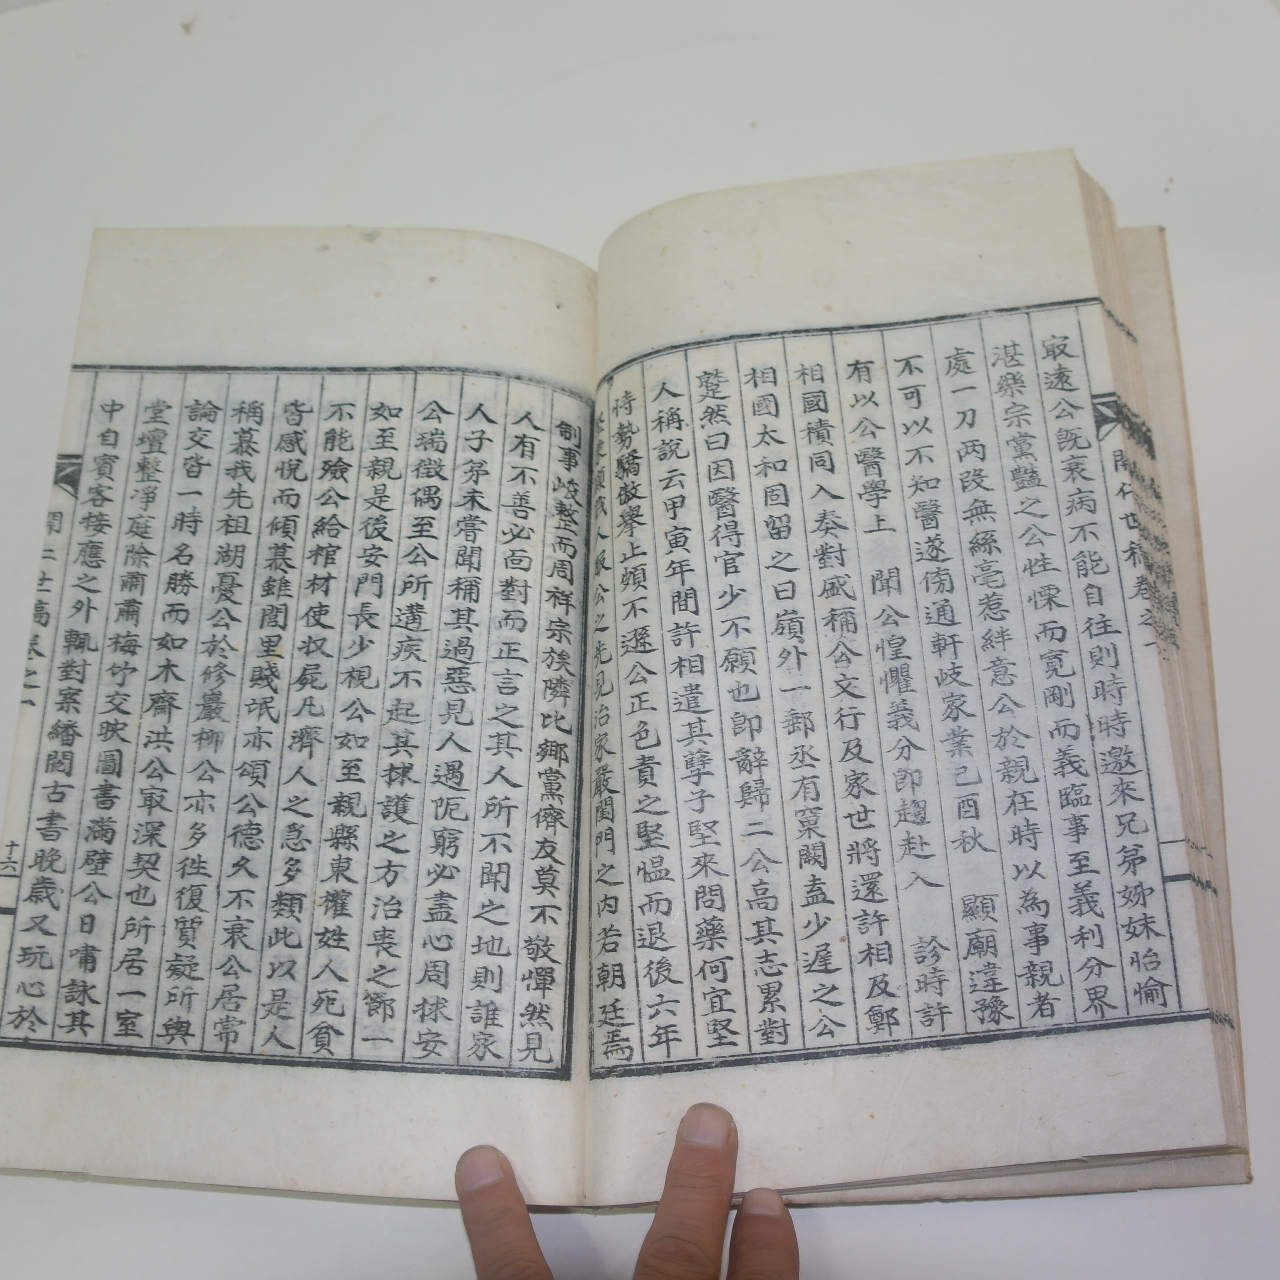 㝡遠公旣衰病不能自往則時時邀來兄弟姊妹怡愉
湛樂宗黨豔之公性慄而寬剛而義臨事至義利分界
處一刀两段無絲毫惹絆意公於親在時以為事親者
不可以不知醫遂傍通軒岐家業己酉秋 顯廟違豫
有以公醫學上 聞公惶懼義分卽趨赴入 診時許
相國積同入奏對盛稱公文行及家世將還許相及鄭
相國太和固留之曰嶺外一郵丞有窠闕盍少遅之公
蹵然曰因醫得官少不願也卽辭歸二公高其志累對
人稱說云甲寅年間許相遣其孽子堅來問藥何宜堅
恃勢驕傲擧止頗不遜公正色責之堅慍而退後六年
公之先見治家嚴閨門之內若朝廷焉
制事峻整而周祥宗族隣比鄉黨儕友莫不敬憚然見
人有不善必面對而正言之其人所不聞之地則誰家
人子弟未嘗聞稱其過惡見人遇阨窮必盡心周救安
公瑞徵偶至公所遘疾不起其救護之方治喪之節一
如至親是後安門長少視公如至親縣東權姓人死貧
不能殮公給棺材使収屍凡濟人之急多類此以是人
皆感悅而傾慕雖閭里賤氓亦頌公德久不衰公居常
稱慕我先祖湖憂公於修巖柳公亦多徃復質疑所與
論交皆一時名勝而如木齋洪公㝡深契也所居一室
堂壇整淨庭除肅肅梅竹交映圖書滿壁公日嘯詠其
中自賓客接應之外輒對案繙閱古書晚歲又玩心於
世稿卷之一
十六